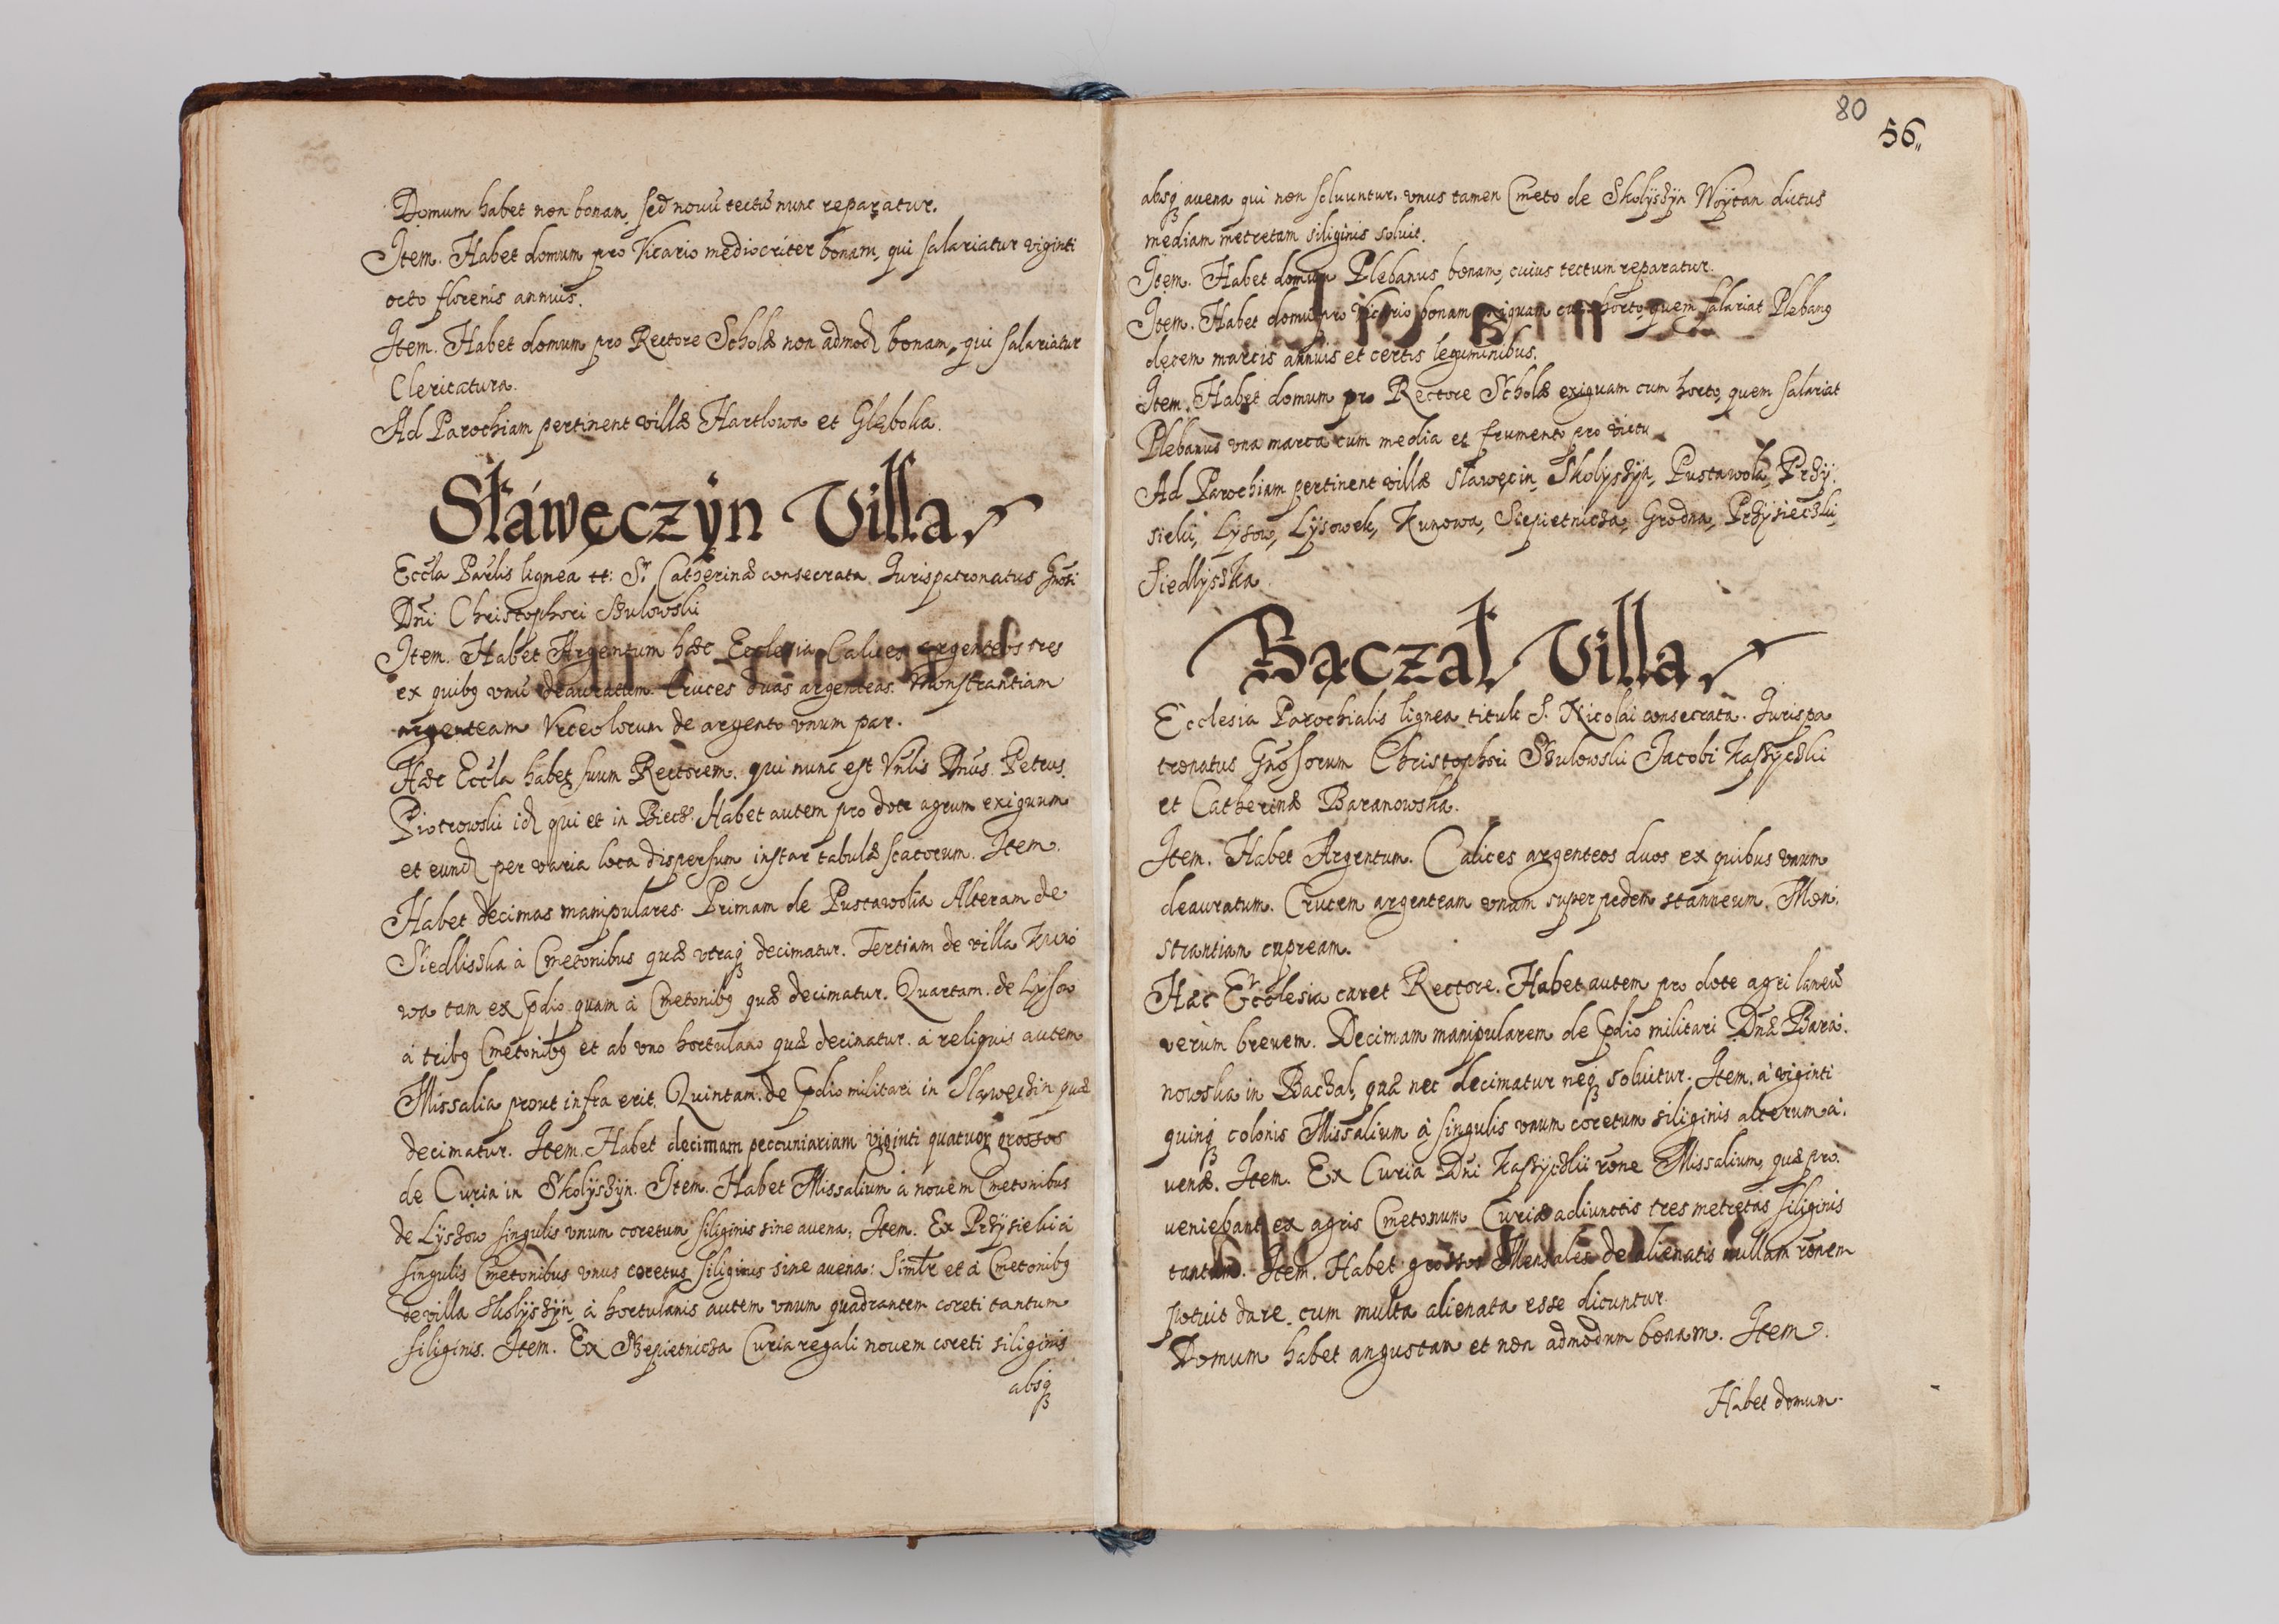 Domum habet non bonam, sed novũ tectũ nunc reparatur.
Item. Habet domum pro Vicario mediocriter bonam, qui salariatur viginti
octo florenis annuis.
Item. Habet domum pro Rectore Scholæ non admod bonam, qui salariatur
Clericatura.
Ad Parochiam pertinent villæ Hartlowa et Glęboka.
Sławęczÿn Villa
Eccła Parlis lignea tt: S. Catherinæ consecrata. Jurispatronatus Gnosi
Dni Christophori Szulowski
Item. Habet Argentum hæc Ecclesia Calices argenteos tres
ex quibq vnũ deauratum. Cruces duas argenteas. Monstrantiam
argenteam Vrceolorum de argento vnum par.
Hæc Eccła habet suum Rectorem. qui nunc est Vnlis Dnus Petrus
Piotrowski id qui et in Biecz. Habet autem pro dote agrum exiguum
et eund per varia loca dispersum instar tabulæ scacorum. Item.
Habet decimas manipulares. Primam de Pustawolia Alteram de
Siedlisska à Cmetonibus quæ vtraq decimatur. Tertiam de villa Kuno
wa tam ex pdio quam à Cmetonibq quæ decimatur. Quartam. de Lysow
à tribq Cmetonibq et ab vno hortulano quæ decimatur. à reliquis autem
Missalia prout infra erit. Quintam. de Pdio militari in Slawęczin quæ
decimatur. Item. Habet decimam peccuniariam viginti quatuor grossos
de Curia in Skolÿszÿn. Item. Habet Missalium à novem Cmetonibus
de Lÿssow singulis vnum coretum siliginis sine avena. Item. Ex Przÿsieki à
singulis Cmetonibus vnus coretus siliginis sine avena: Simłr et à Cmetonibq
de villa Skolÿszÿn, à hortulanis autem vnum quadrantem coreti tantum
siliginis. Item. Ex Szepietnicza Curia regali novem coreti siliginis
absq
80
56
absq avena qui non soluuntur. vnus tamen Cmeto de Skolÿszÿn Woÿtan dictus
mediam metretam siliginis soluit.
Item. Habet domum Plebanus bonam, cuius tectum reparatur.
Item. Habet domũ pro Vicario bonam exiguam cum horto, quem salariat Plebanq
decem marcis annuis et certis leguminibus.
Item. Habet domum pro Rectore Scholæ exiguam cum horto, quem salariat
Plebanus vna marca cum media et frumento pro victu
Ad Parochiam pertinent villæ Sławęcin, Skolÿszÿn, Pustawola, Przÿ
sieki, Lÿsow, Lÿsowek, Kunowa, Siepietnicza, Grodna, Przÿsieczki,
Siedlÿszka
Bączał Villa
Ecclesia Parochialis lignea tituli S. Nicolai consecrata. Jurispa
tronatus Gnosorum Christophori Szulowski Jacobi Kaszÿczki
et Catherinæ Baranowska.
Item. Habet Argentum. Calices argenteos duos ex quibus vnum
deauratum. Crucem argenteam vnam super pedem stanneum. Mon
strantiam cupream.
Hæc Ecclesia caret Rectore. Habet autem pro dote agri laneũ
verum brevem. Decimam manipularem de Pdio militari Dnæ Bara
nowska in Baczal, quæ nec decimatur neq soluitur. Item. à viginti
quinq colonis Missalium à singulis vnum coretum siliginis alterum a
venæ. Item. Ex Curia Dni Kaszÿczki rõne Missalium, quæ pro
veniebant ex agris Cmetonum Curiæ adiunctis tres metretas siliginis
tantum. Item. Habet grossos Mensales de alienatis nullam rõnem
potuit dare. cum multa alienata esse dicuntur.
Domum habet angustam et non admodum bonam. Item.
Habet domum